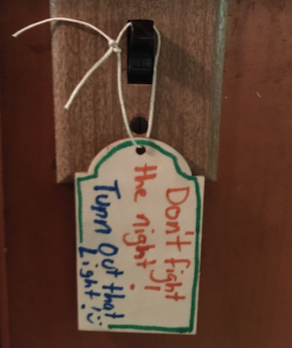 Don't fight
the night!
Turn Out that
Light! :)